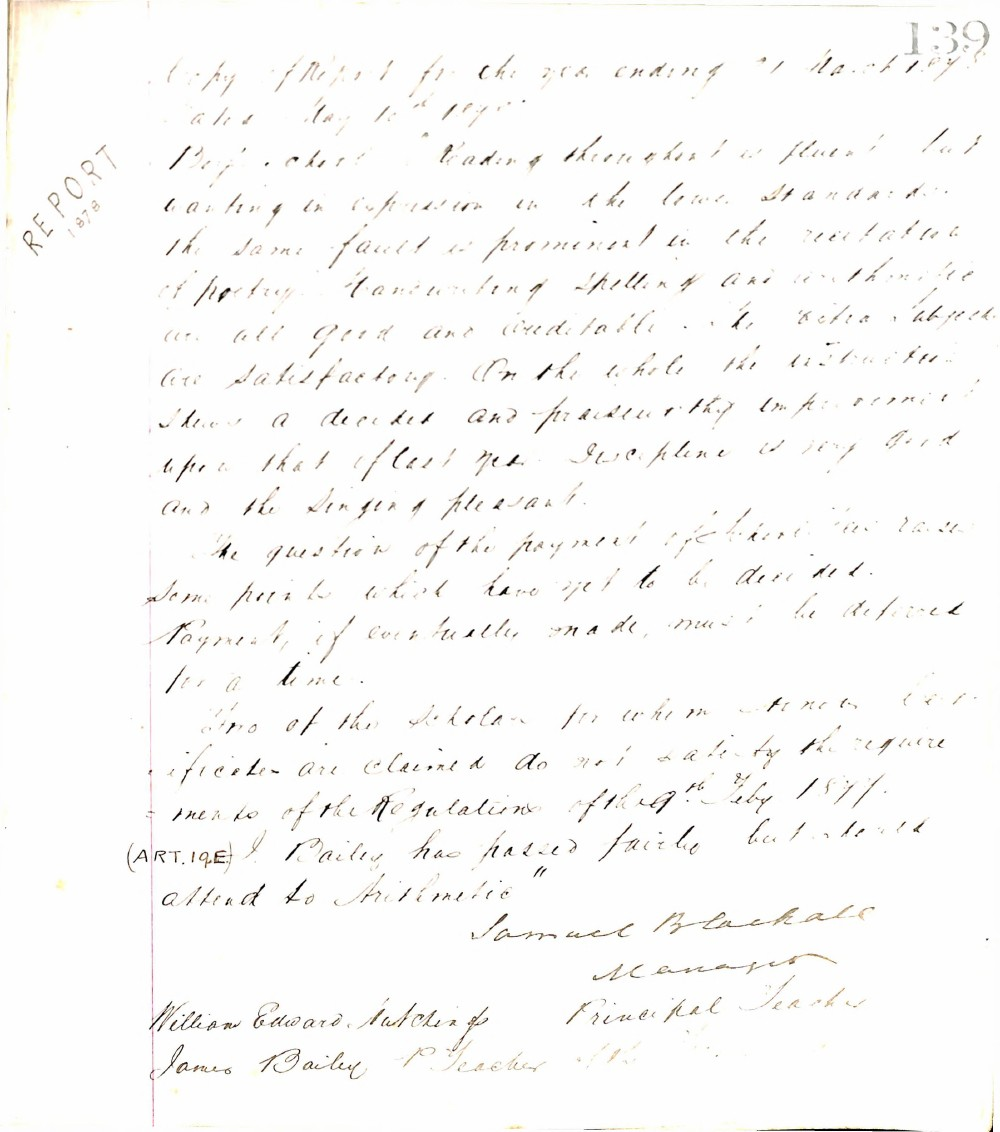 139
Copy of Report for the year ending 31 March 1878
Dated May 10th 1878
REPORT
1878
Boys School "Reading throughout is fluent but
wanting in expression in the lower Standards.
The same fault is prominent in the recitation
of poetry. Handwriting Spelling and Arithmetic
are all good and creditable. The Extra Subjects
are satisfactory. On the whole the instruction
shews a decided and praiseworthy improvement
upon that of last year. Discipline is very good
and the Singing pleasant.
The question of the payment of School fees raises
some points which have yet to be decided.
Payment, if eventually made, must be deferred
for a time.
Two of the Scholars for whom Honor Cert-
ificates are claimed do not satisfy the require
= ments of the Regulations of the 9th Feby 1877.
(ART. 19E) J. Bailey has passed fairly but should
attend to Arithmetic"
Samuel Blackall
Manager
William Edward Hutchings Principal Teacher
James Bailey P Teacher